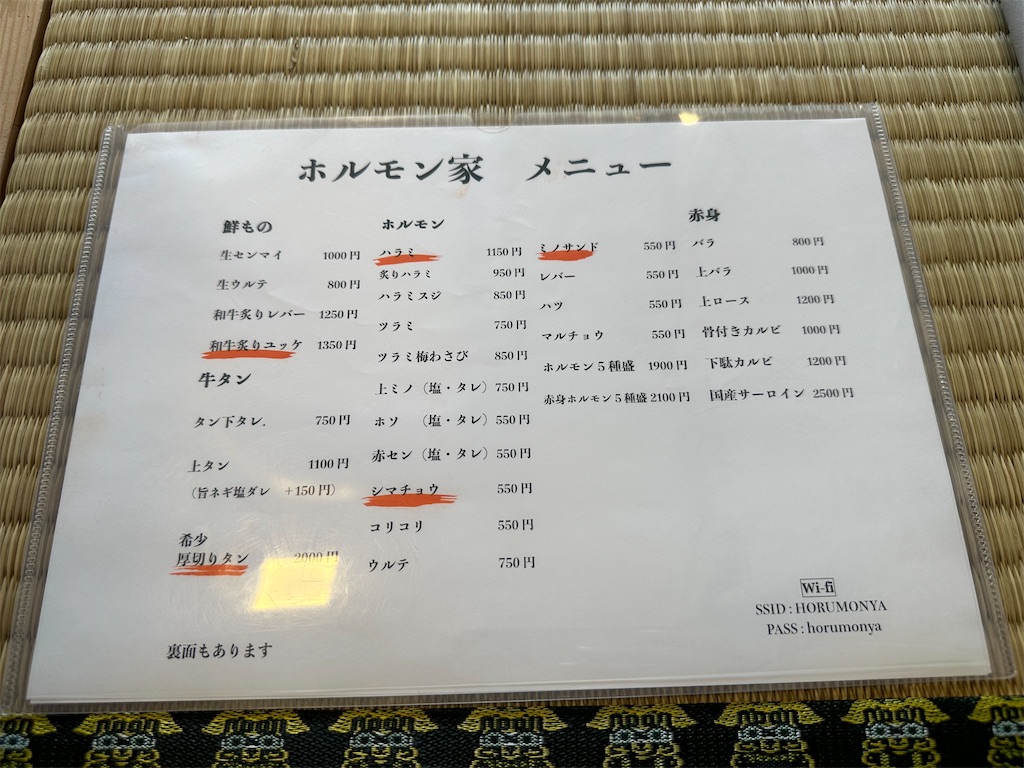 ホルモン家 メニュー
鮮もの
生センマイ 1000円
生ウルテ 800円
和牛炙りレバー 1250円
和牛炙りユッケ 1350円
牛タン
タン下タレ. 750円
上タン 1100円
(旨ネギ塩ダレ +150円)
希少
厚切りタン 2000円
ホルモン
ハラミ 1150円
炙りハラミ 950円
ハラミスジ 850円
ツラミ 750円
ツラミ梅わさび 850円
上ミノ(塩・タレ) 750円
ホソ (塩・タレ) 550円
赤セン(塩・タレ) 550円
シマチョウ 550円
コリコリ 550円
ウルテ 750円
ミノサンド 550円
レバー 550円
ハツ 550円
マルチョウ 550円
ホルモン5種盛 1900円
赤身ホルモン5種盛 2100円
赤身
バラ 800円
上バラ 1000円
上ロース 1200円
骨付きカルビ 1000円
下駄カルビ 1200円
国産サーロイン 2500円
Wi-fi
SSID : HORUMONYA
PASS : horumonya
裏面もあります